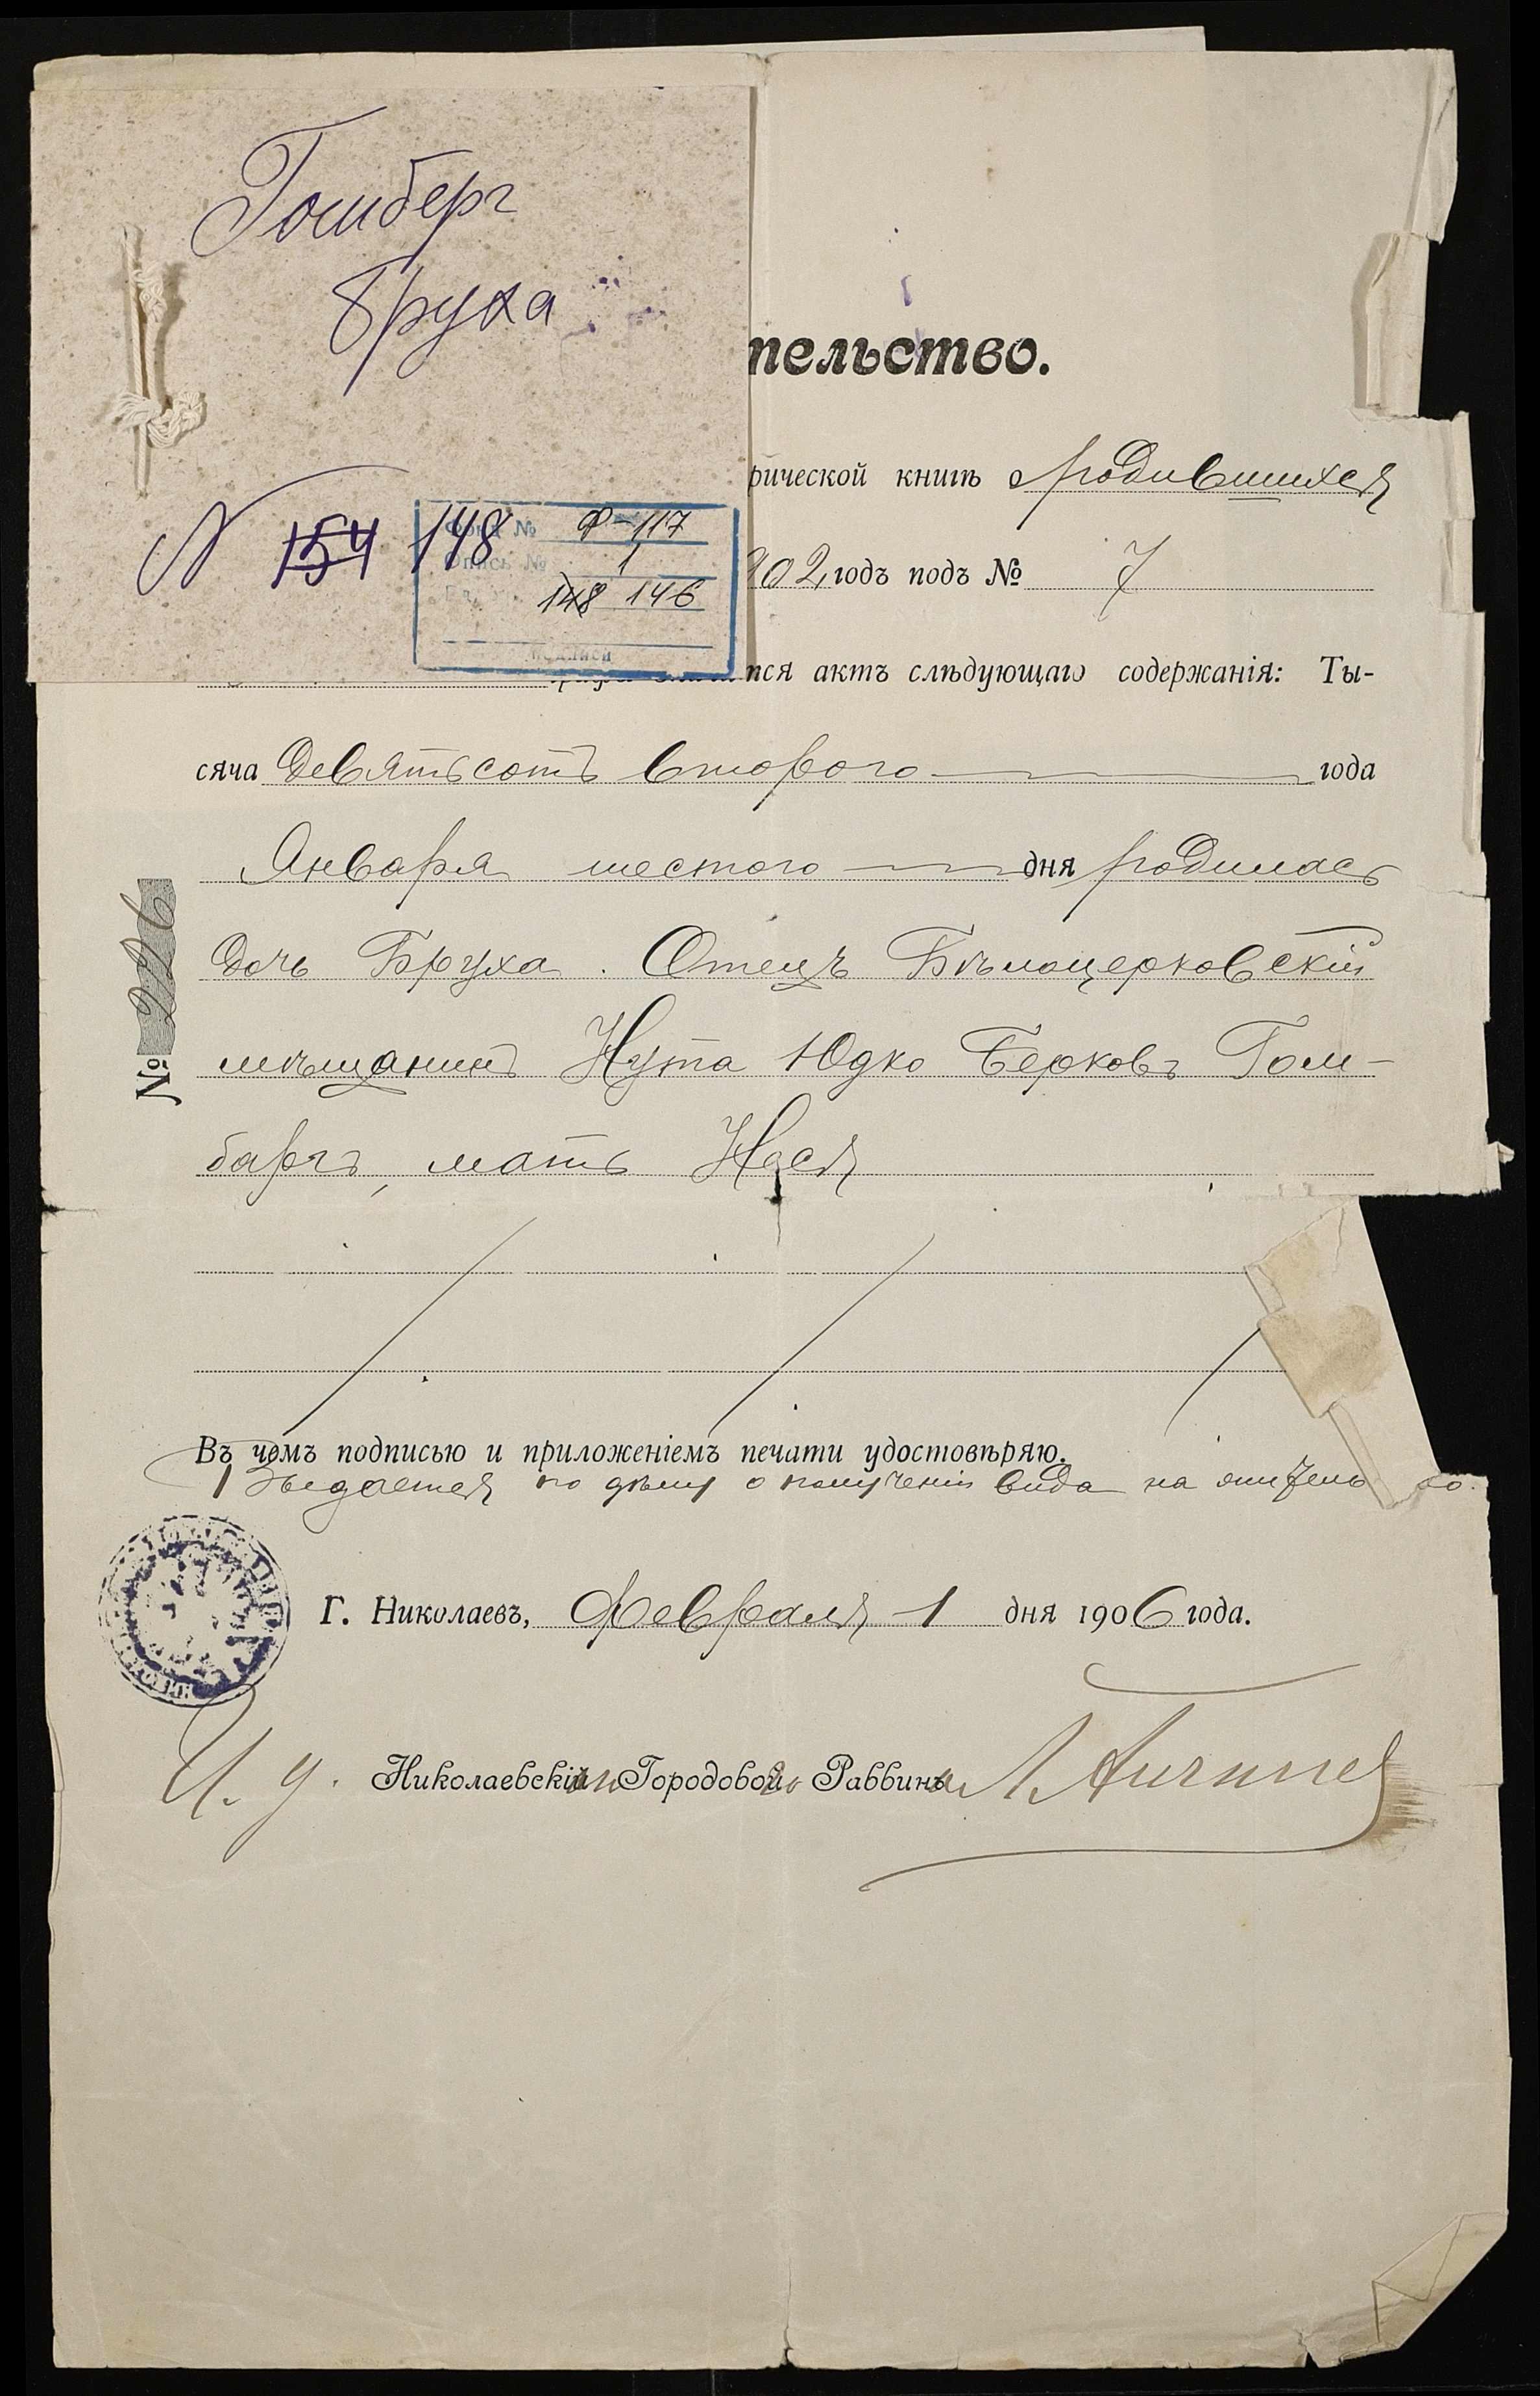 Гомберг
Бруха
N 154 148
Фонд № Ф-117
Опись № 1
148 146
тельство.
рической книгѣ о родившихся
902 годъ подъ № 7
тся актъ слѣдующаго содержанія: Ты-
сяча девятьсотъ второго года
Января шестого дня родилась
дочь Бруха. Отецъ Бѣлоцерковскій
мѣщанинъ Нута Юдко Берковъ Гом-
баргъ, мать Нася
№ 226
Въ чемъ подписью и приложеніемъ печати удостовѣряю.
Выдается по дѣлу о полученіи вида на жительство.
Г. Николаевъ, Февраля 1 дня 1906 года.
И. д. Николаевскій Городовой Раввинъ